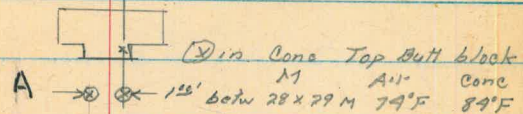 ⓧ in Conc Top Butt block
M Air Conc
A 1.00' betw 28 x 29 M 74°F 84°F